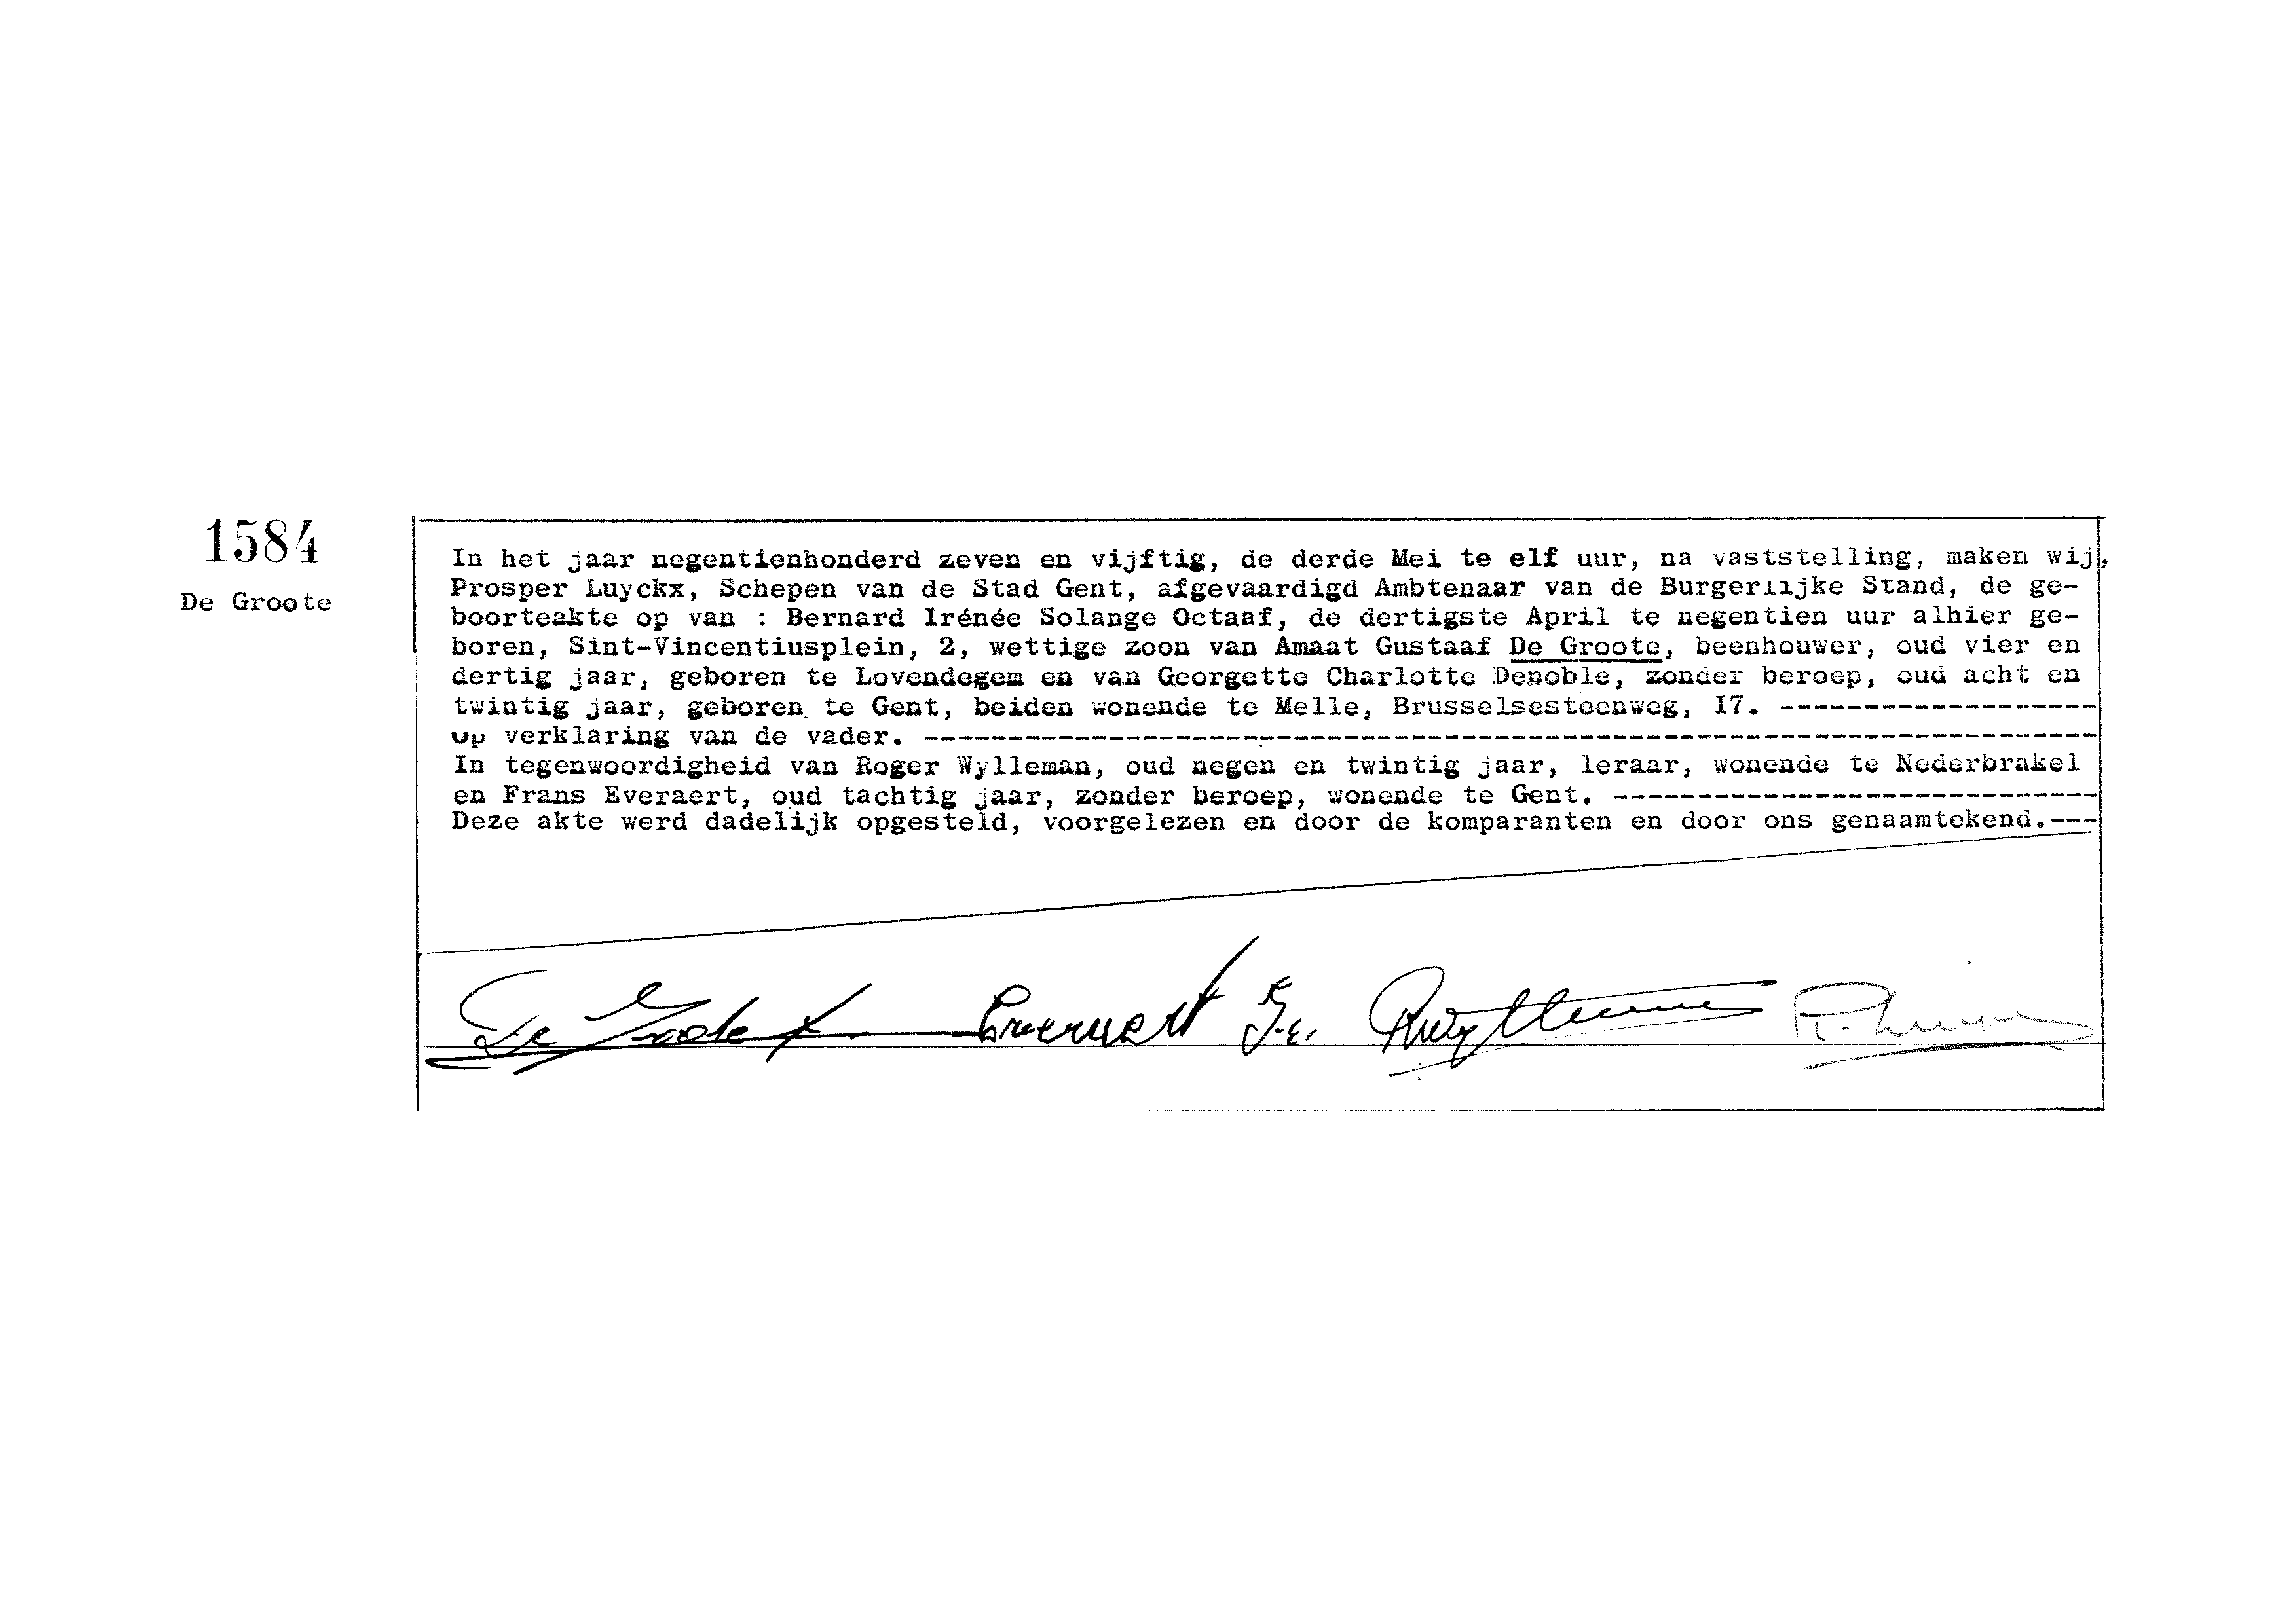 1584
De Groote
In het jaar negentienhonderd zeven en vijftig, de derde Mei te elf uur, na vaststelling, maken wij,
Prosper Luyckx, Schepen van de Stad Gent, afgevaardigd Ambtenaar van de Burgerlijke Stand, de ge-
boorteakte op van : Bernard Irénée Solange Octaaf, de dertigste April te negentien uur alhier ge-
boren, Sint-Vincentiusplein, 2, wettige zoon van Amaat Gustaaf De Groote, beenhouwer, oud vier en
dertig jaar, geboren te Lovendegem en van Georgette Charlotte Denoble, zonder beroep, oud acht en
twintig jaar, geboren te Gent, beiden wonende te Melle, Brusselsesteenweg, I7. -------------------
Op verklaring van de vader. ----------------------------------------------------------------------
In tegenwoordigheid van Roger Wylleman, oud negen en twintig jaar, leraar, wonende te Nederbrakel
en Frans Everaert, oud tachtig jaar, zonder beroep, wonende te Gent. -----------------------------
Deze akte werd dadelijk opgesteld, voorgelezen en door de komparanten en door ons genaamtekend.---
De Groote Everaert Fr. RWylleman